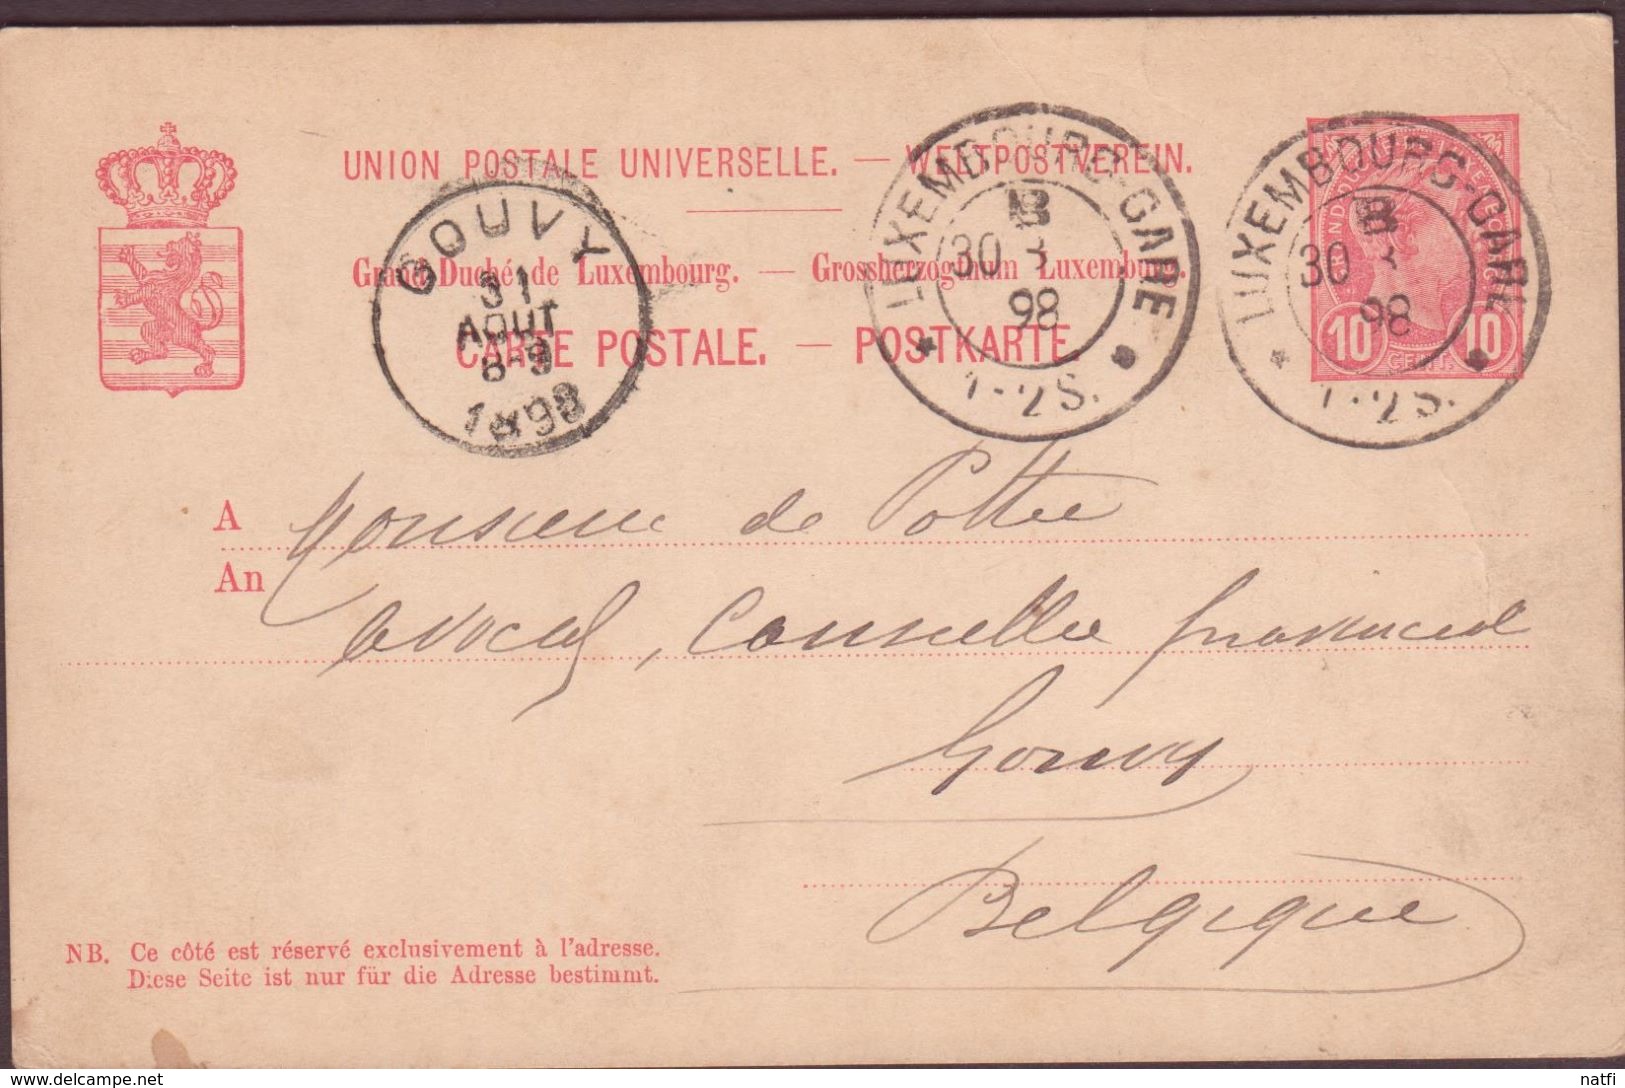 UNION POSTALE UNIVERSELLE. — WELTPOSTVEREIN.
Grand-Duché de Luxembourg. — Grossherzogthum Luxemburg.
CARTE POSTALE. — POSTKARTE.
GOUVY
31
AOUT
8-9
1898
LUXEMBOURG-GARE
B
30 8
98
1-2S.
LUXEMBOURG-GARE
B
30 8
98
1-2S.
10 CENT. 10
A Monsieur de Potter
An
avocat, Conseiller provincial
Gouvy
Belgique
NB. Ce côté est réservé exclusivement à l'adresse.
Diese Seite ist nur für die Adresse bestimmt.
www.delcampe.net
natfi